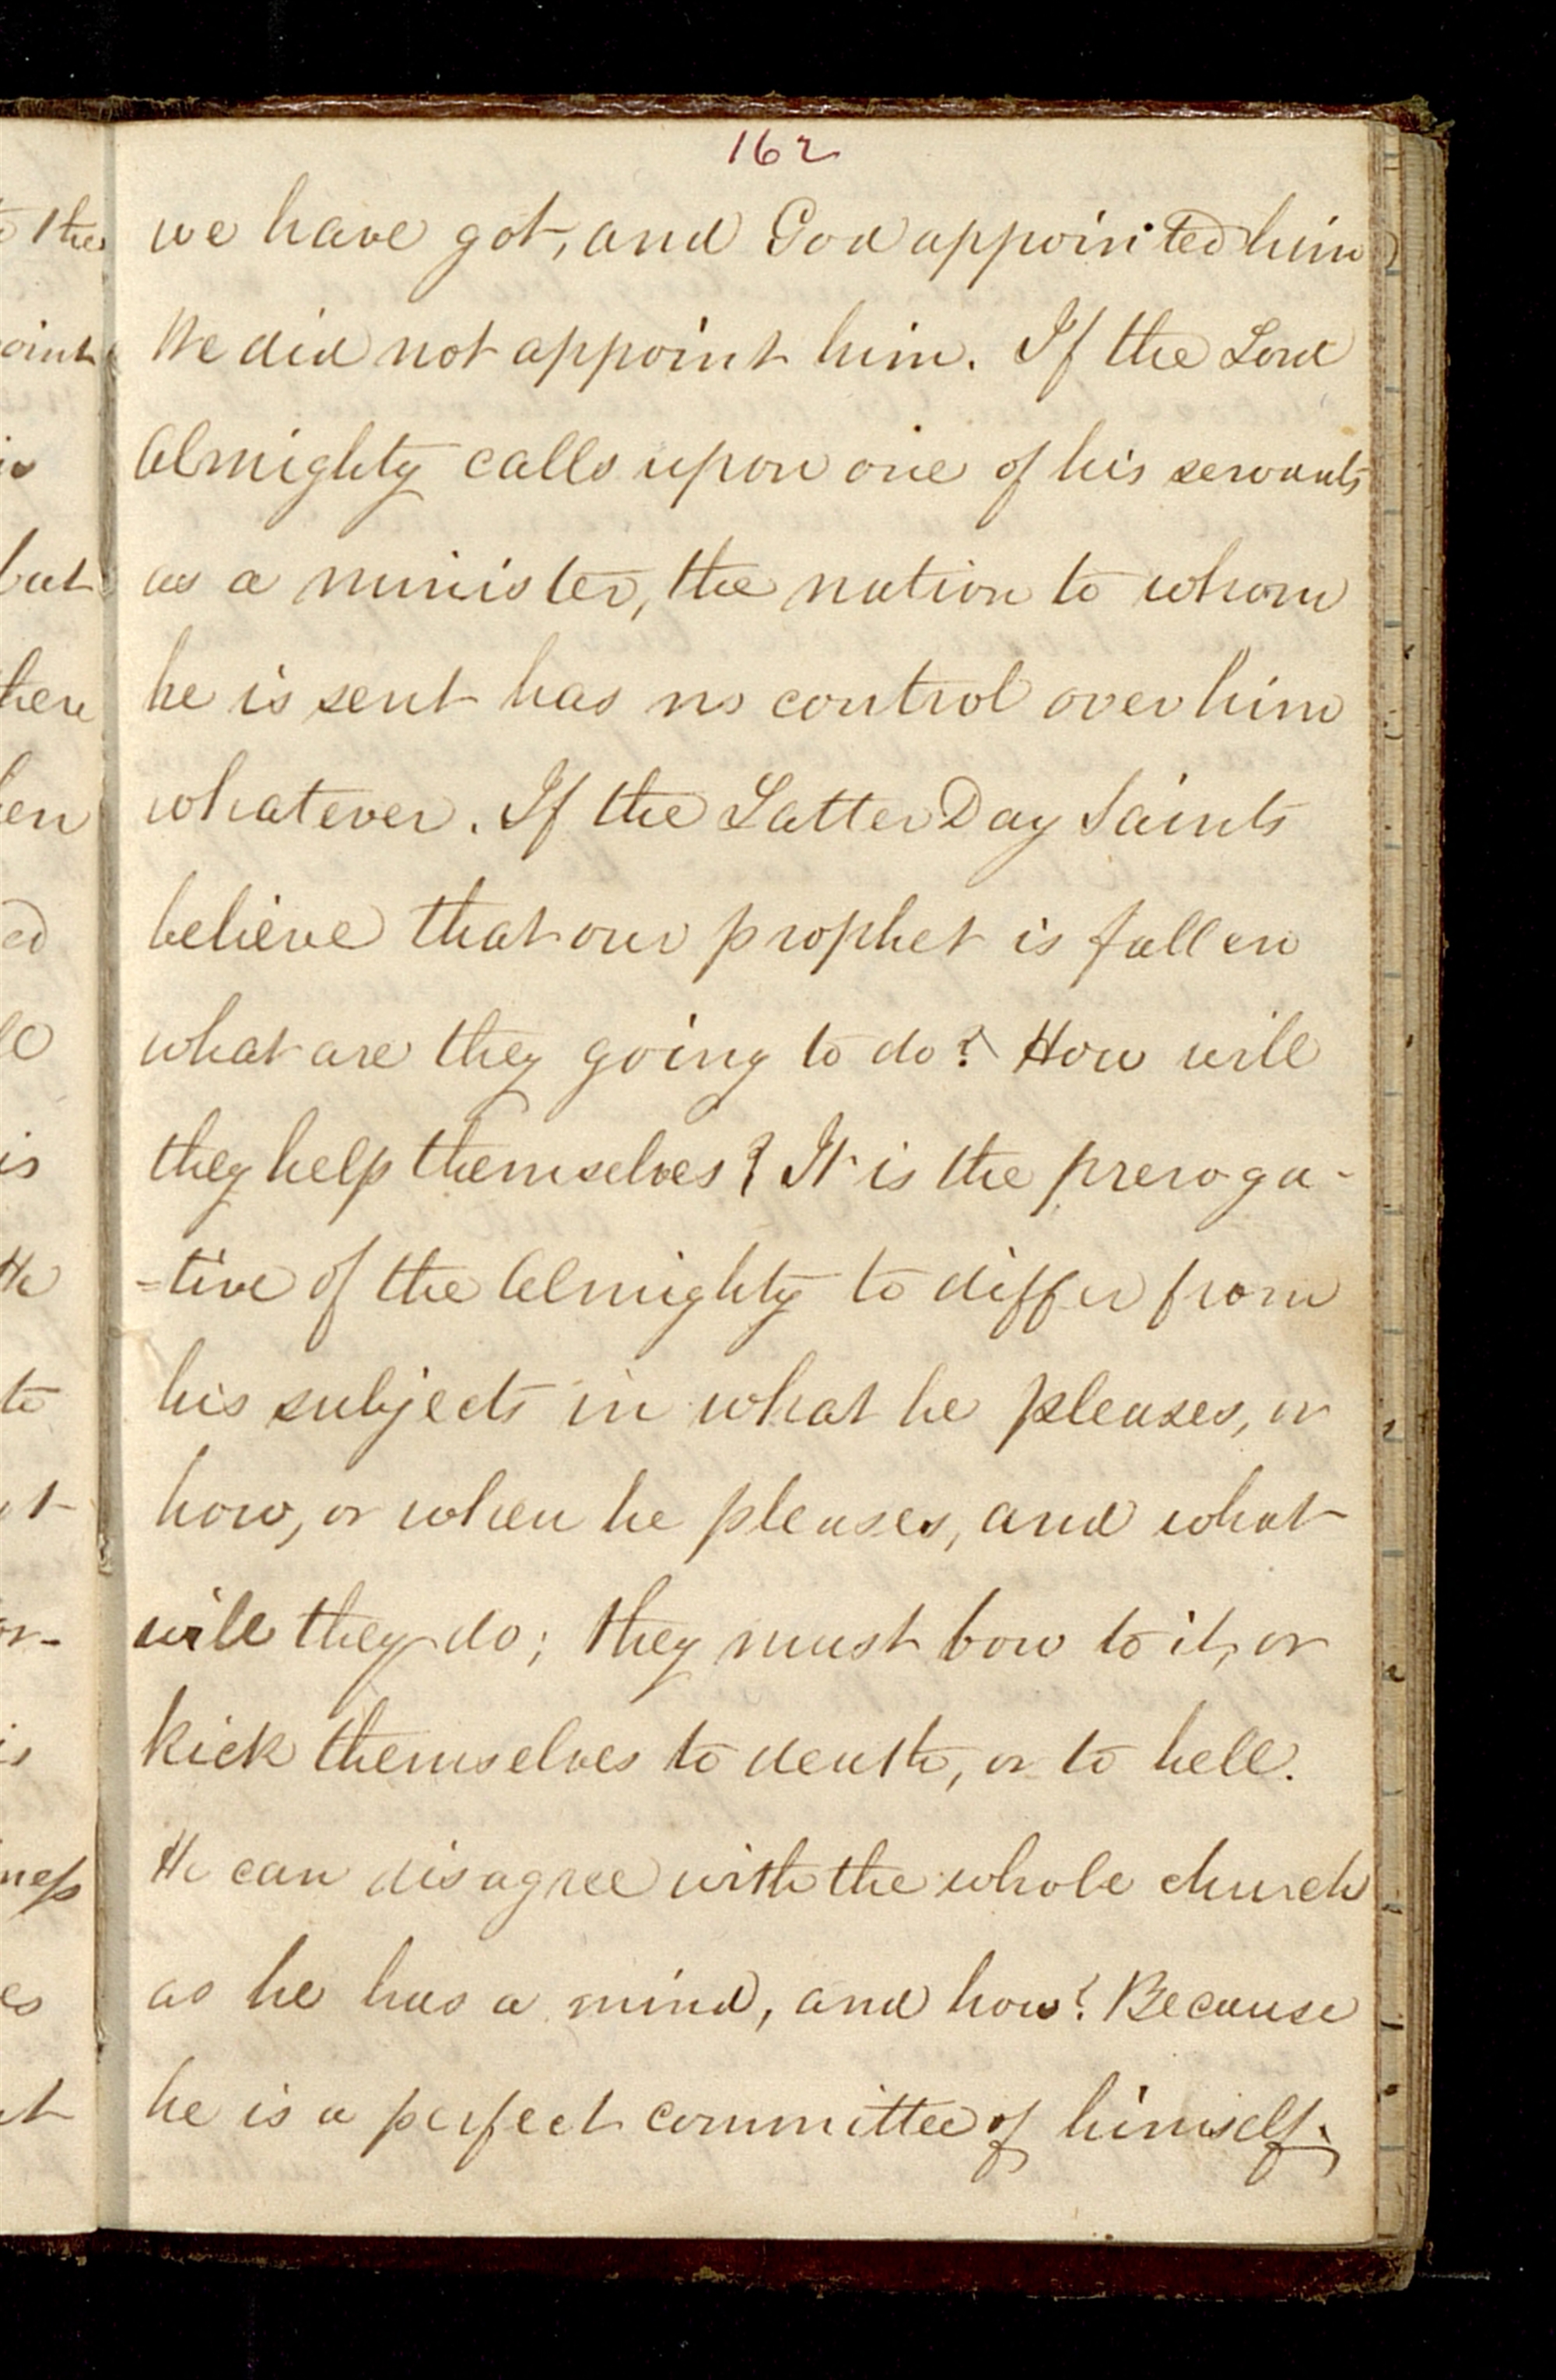 162
we have got, and God appointed him
We did not appoint him. If the Lord
Almighty calls upon one of his servants
as a minister, the nation to whom
he is sent has no control over him
whatever. If the Latter Day Saints
believe that our prophet is fallen
what are they going to do? How will
they help themselves? It is the preroga-
=tive of the Almighty to differ from
his subjects in what he pleases, or
how, or when he pleases, and what
will they do; they must bow to it, or
kick themselves to death, or to hell.
He can disagree with the whole church
as he has a mind, and how? Because
he is a perfect committee of himself.